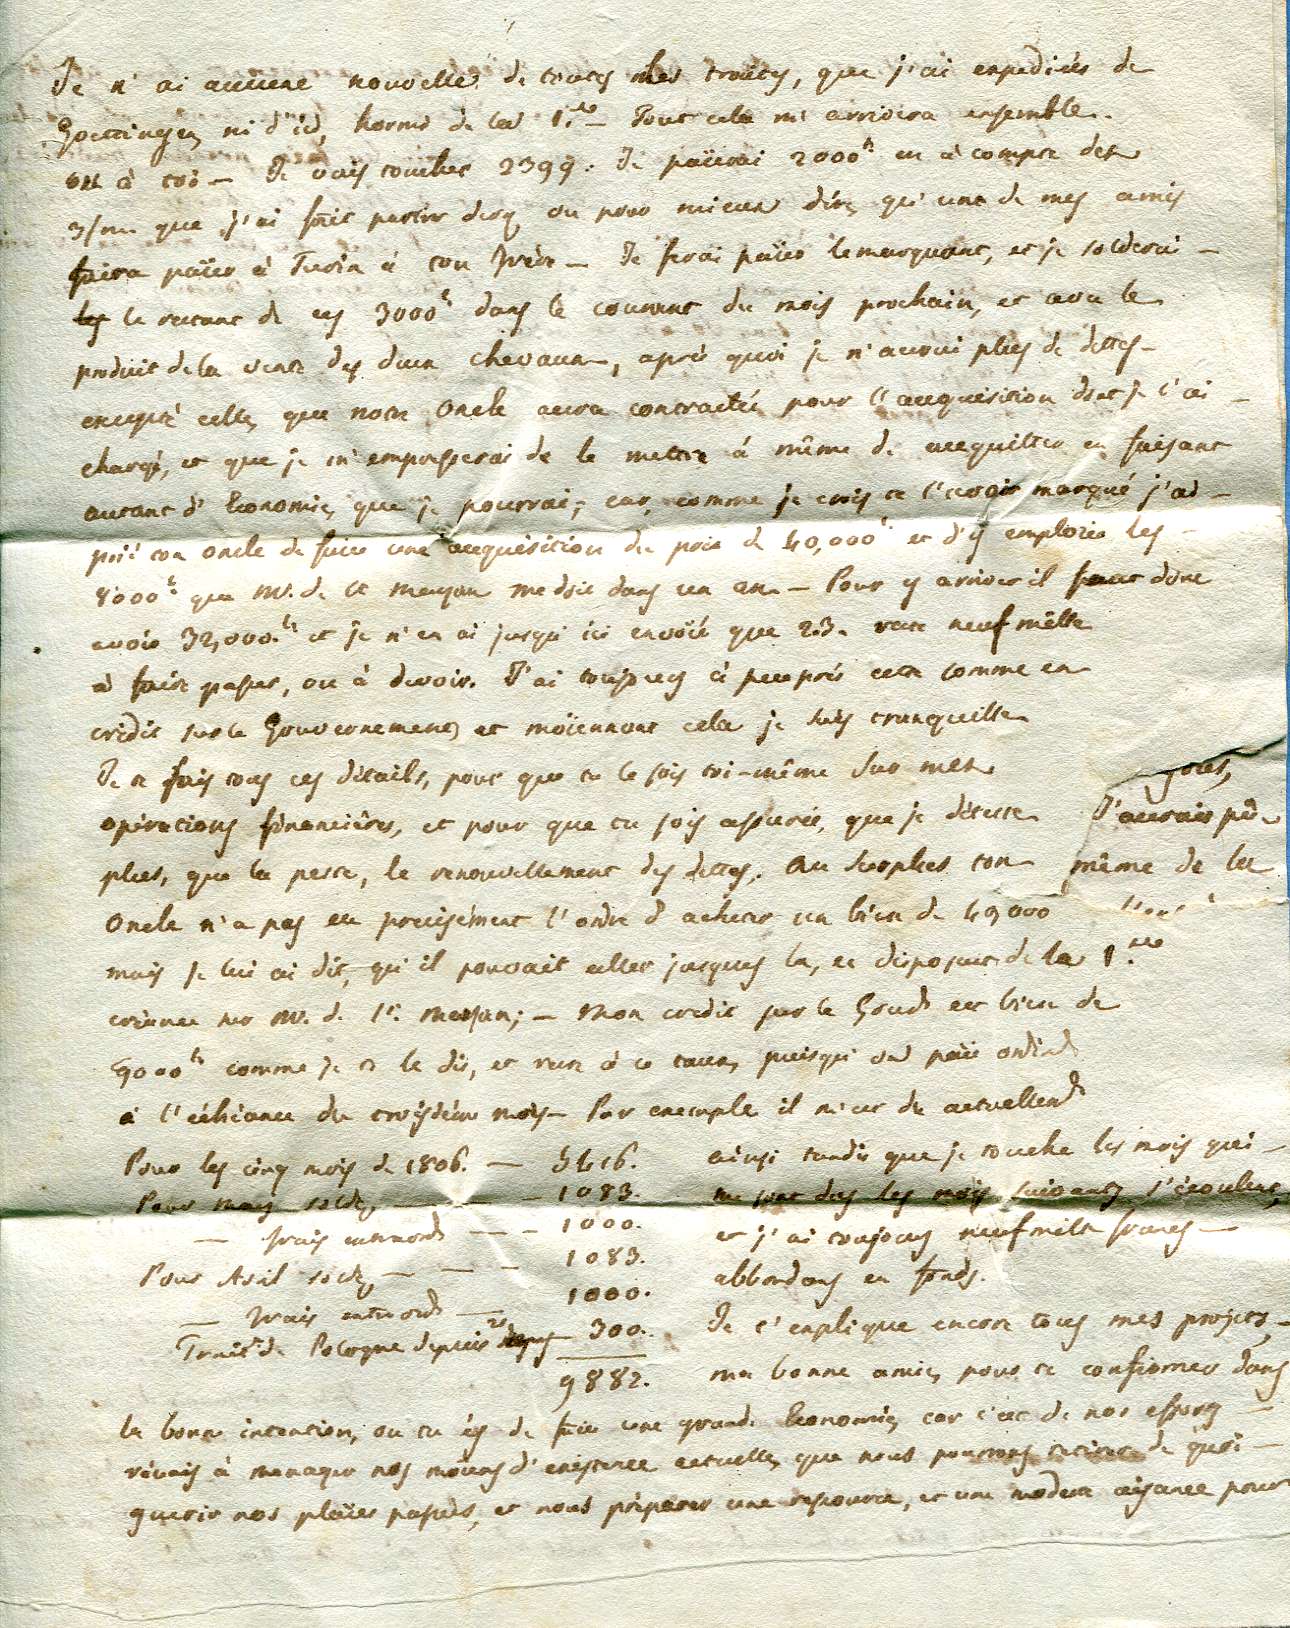 Je n'ai aucune nouvelle de toutes mes traites, que j'ai expediées de
Goettingen ni d'ici, hormis de la 1.re — Tout cela m'arrivera ensemble.
à toi — Je vais toucher 2399. Je païerai 2000 en à compte des
3/m que j'ai fait partir ou pour mieux dire qu'une de mes amis
faira païer à Turin à ton frère — Je ferai païer le manquant, et je solderai —
le restant de ces 3000 dans le courant du mois prochain, et avec le
produit de la vente des deux chevaux, après quoi je n'aurai plus de dettes —
excepté celle, que notre Oncle aura contractée pour l'acquisition dont je l'ai —
chargé, et que je m'empresserai de le mettre à même de acquitter en faisant
autant d'Economie, que je pourrai; car, comme je crois te l'avoir marqué j'ai —
prié ton Oncle de faire une acquisition du prix de 40,000 et d'y emploïer les —
8000 que Mr. de St Marsan me doit dans un an. — Pour y arriver il faut donc
avoir 32,000 et je n'en ai jusqu'ici envoïé que 23. reste neuf mille
à faire passer, ou à devoir. J'ai toujours à peu près cette somme en
crédit sur le Gouvernement et moïennant cela je suis tranquille
Je te fais tous ces détails, pour que tu le sois toi-même sur mes
opérations financières, et pour que tu sois assurée, que je déteste J'aurais pû
plus, que la peste, le renouvellement des dettes. Au surplus ton même de la
Oncle n'a pas eu precisément l'ordre d'acheter un bien de 40,000
mais je lui ai dit, qu'il pouvait aller jusques là, et disposer de la 1.re
créance sur Mr. de St. Marsan; — Mon credit sur le Gouvt est bien de
9000 comme je te le dis, et reste à ce taux, puisqu'on païe ordint
à l'échéance du troisième mois — Par exemple il m'est du actuellemt
Pour les cinq mois de 1806. — 5416. ainsi tandis que je touche les mois qui —
Pour mars solde — 1083. me sont dus les mois suivants s'écoulent,
— frais extraords — 1000. et j'ai toujours neuf mille francs —
Pour Avril solde — — — 1083. abbondans en fonds.
— frais extraord — 1000.
Traitt de Pologne depuis 300. Je t'explique encore tous mes projets, —
9882. ma bonne amie, pour te confirmer dans
la bonne intention, où tu és de faire une grande Economie, car c'est de nos efforts —
réunis à menager nos moïens d'existence actuelle, que nous pourrons retirer de quoi —
guerir nos plaïes passées, et nous préparer une ressource, et une modeste aisance pour